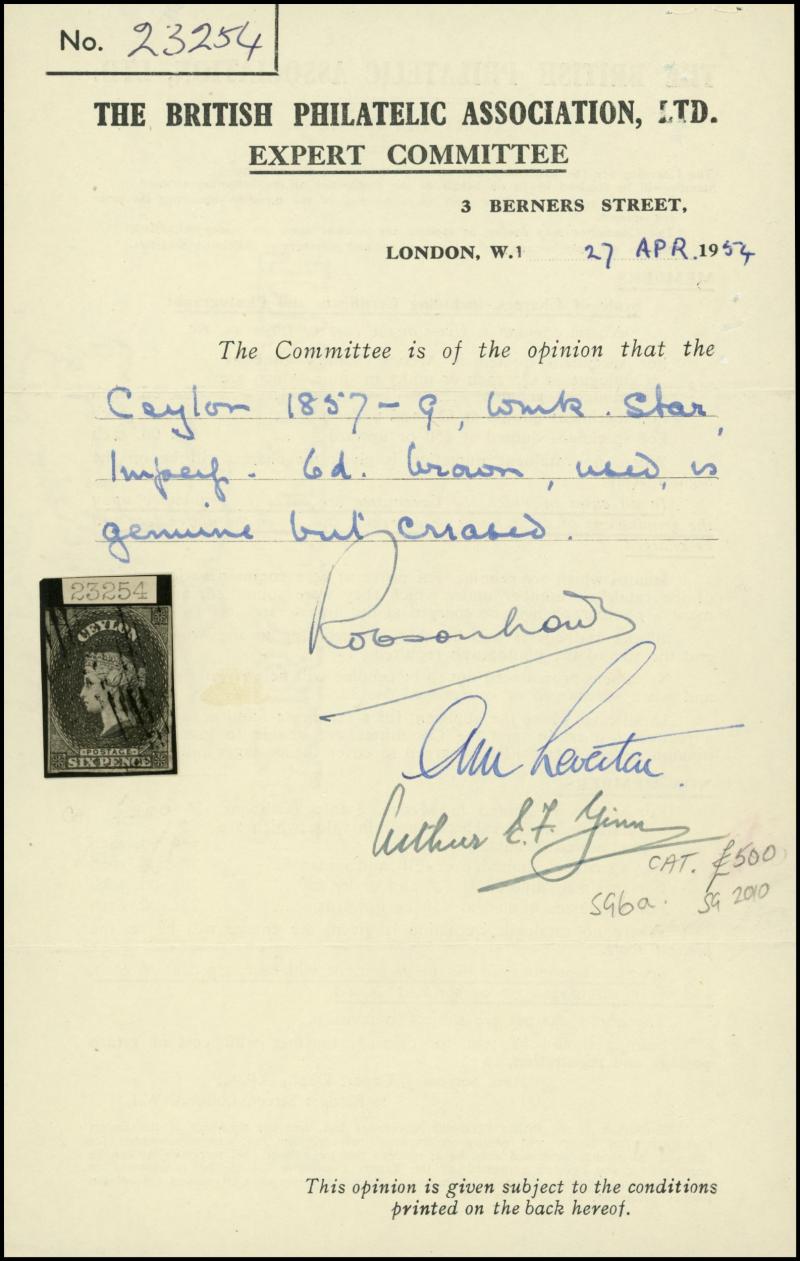 No. 23254
THE BRITISH PHILATELIC ASSOCIATION, LTD.
EXPERT COMMITTEE
3 BERNERS STREET,
LONDON, W.1 27 APR. 1954
The Committee is of the opinion that the
Ceylon 1857-9, wmk. Star,
Imperf. 6d. brown, used, is
genuine but creased.
23254
CEYLON
POSTAGE
SIX PENCE
Arthur E. F. Ginn
CAT. £500
SG6a. SG 2010
This opinion is given subject to the conditions
printed on the back hereof.